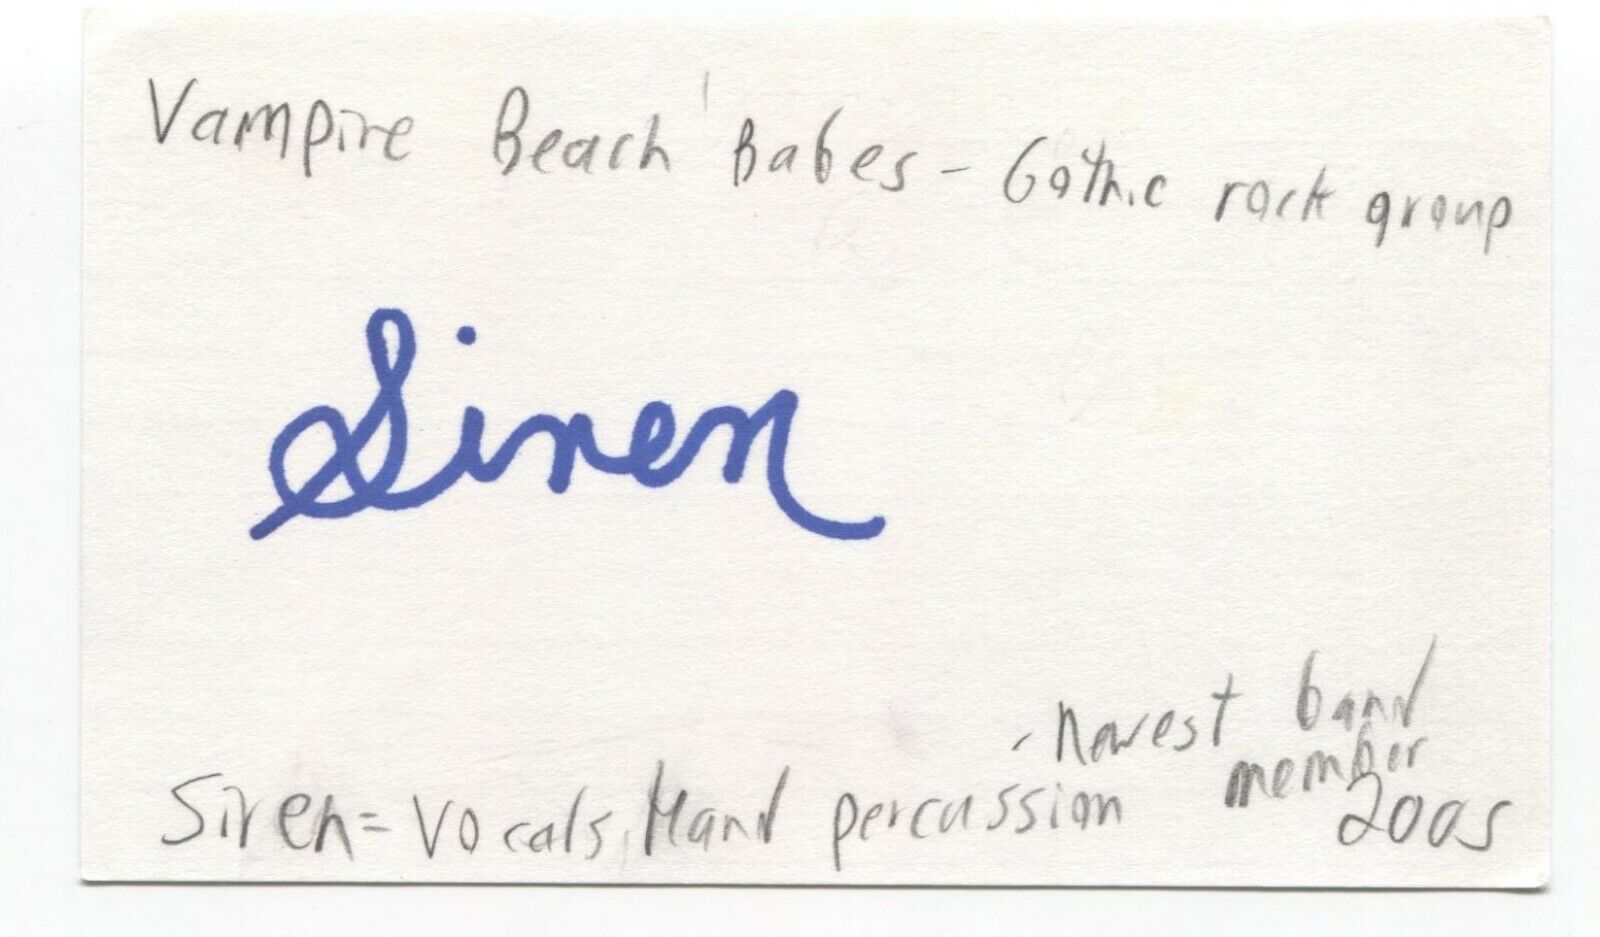 Vampire Beach Babes - Gothic rock group
Siren
- Newest band
member
Siren = Vocals, Hand percussion
2005